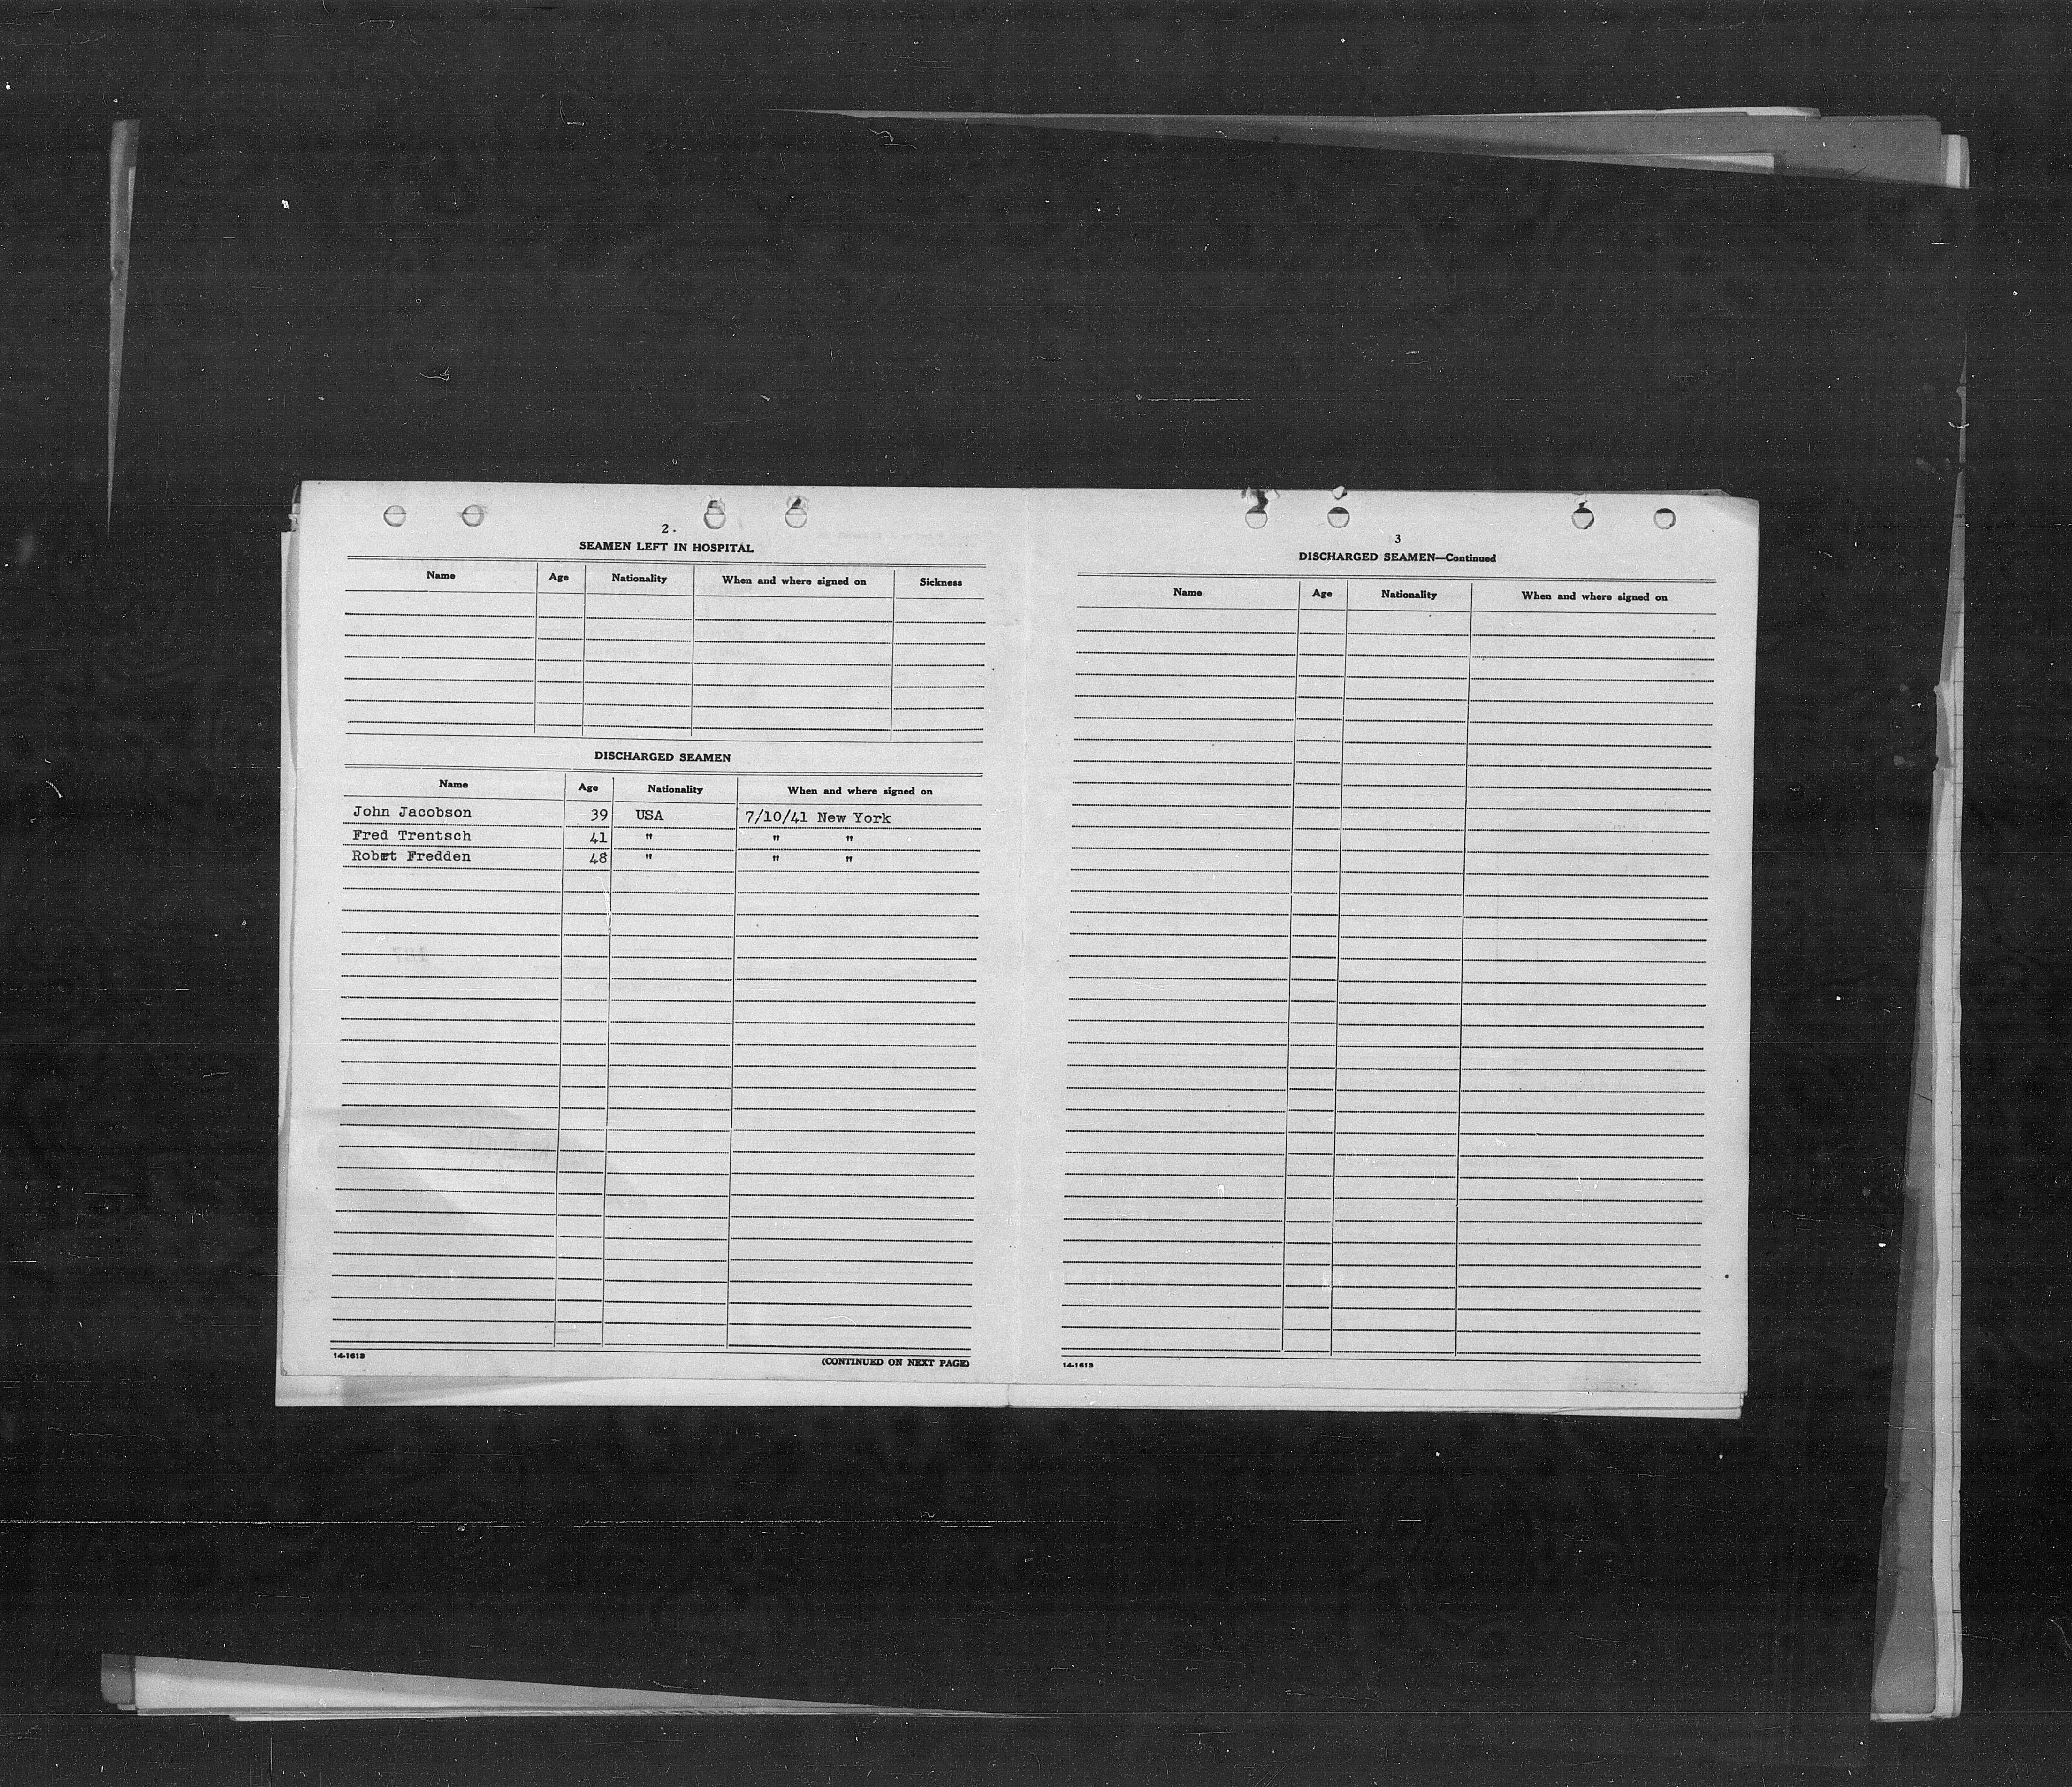 2.
SEAMEN LEFT IN HOSPITAL
Name Age Nationality When and where signed on Sickness
DISCHARGED SEAMEN
Name Age Nationality When and where signed on
John Jacobson 39 USA 7/10/41 New York
Fred Trentsch 41 " " "
Robert Fredden 48 " " "
14-1613 (CONTINUED ON NEXT PAGE)
3
DISCHARGED SEAMEN—Continued
Name Age Nationality When and where signed on
14-1613